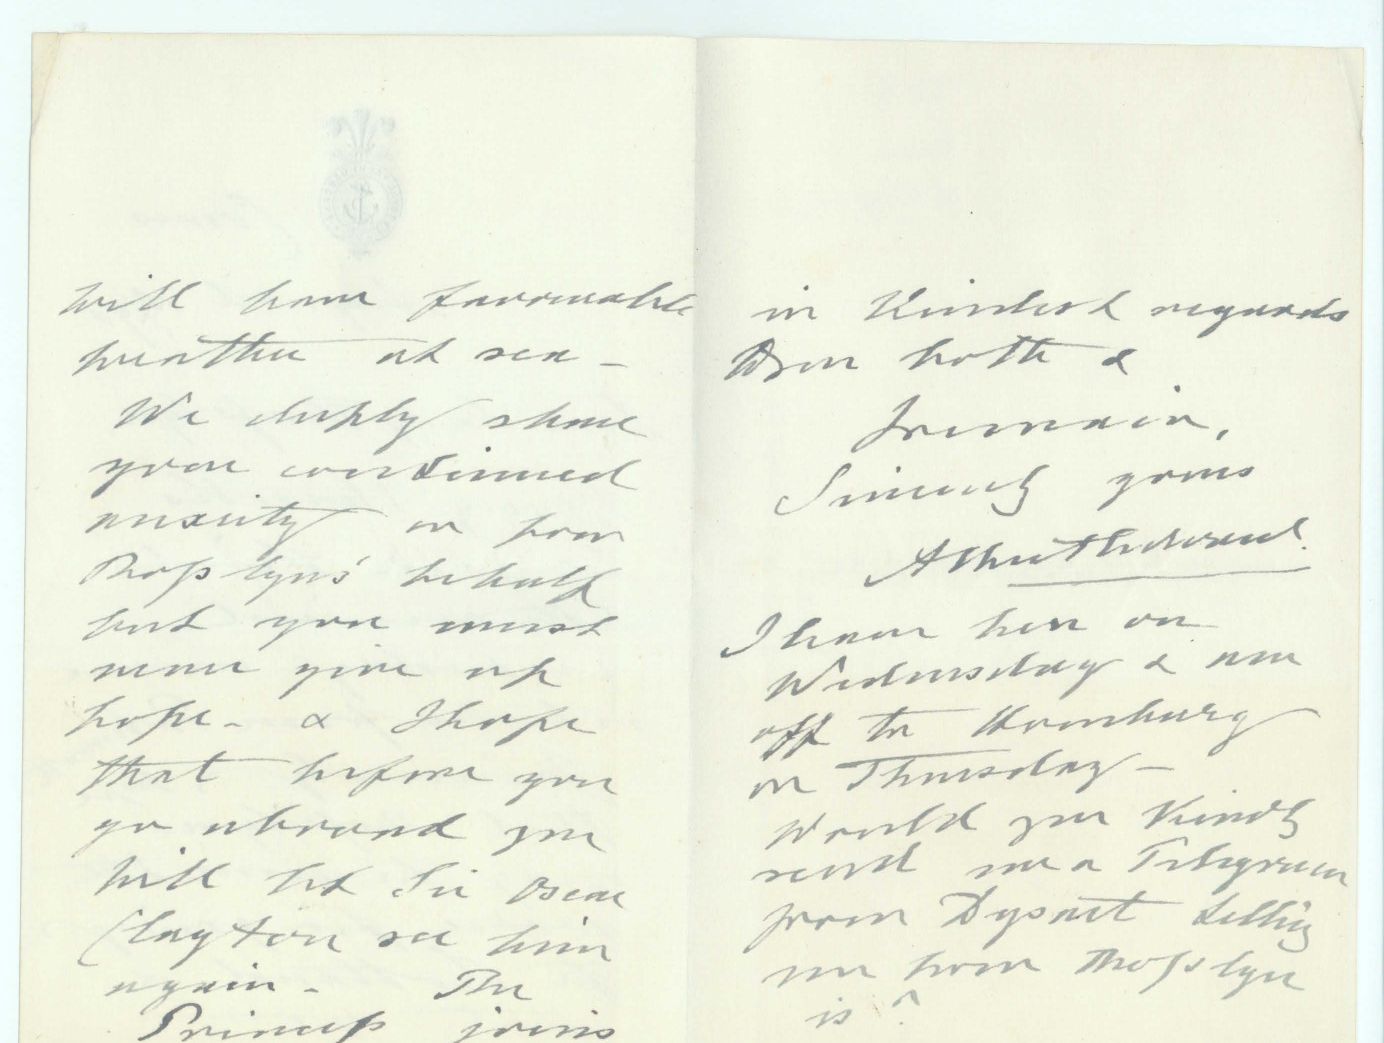 will have favourable
weather at sea –
We deeply share
your continued
anxiety on poor
Rosslyn's behalf
but you must
never give up
hope – & I hope
that before you
go abroad you
will let Sir Oscar
Clayton see him
again – The
Princess joins
in kindest regards
to you both &
I remain,
Sincerely yours
Albert Edward.
I leave here on
Wednesday & am
off to Homburg
on Thursday –
Would you kindly
send me a Telegram
from Dysart telling
me how Rosslyn
is?